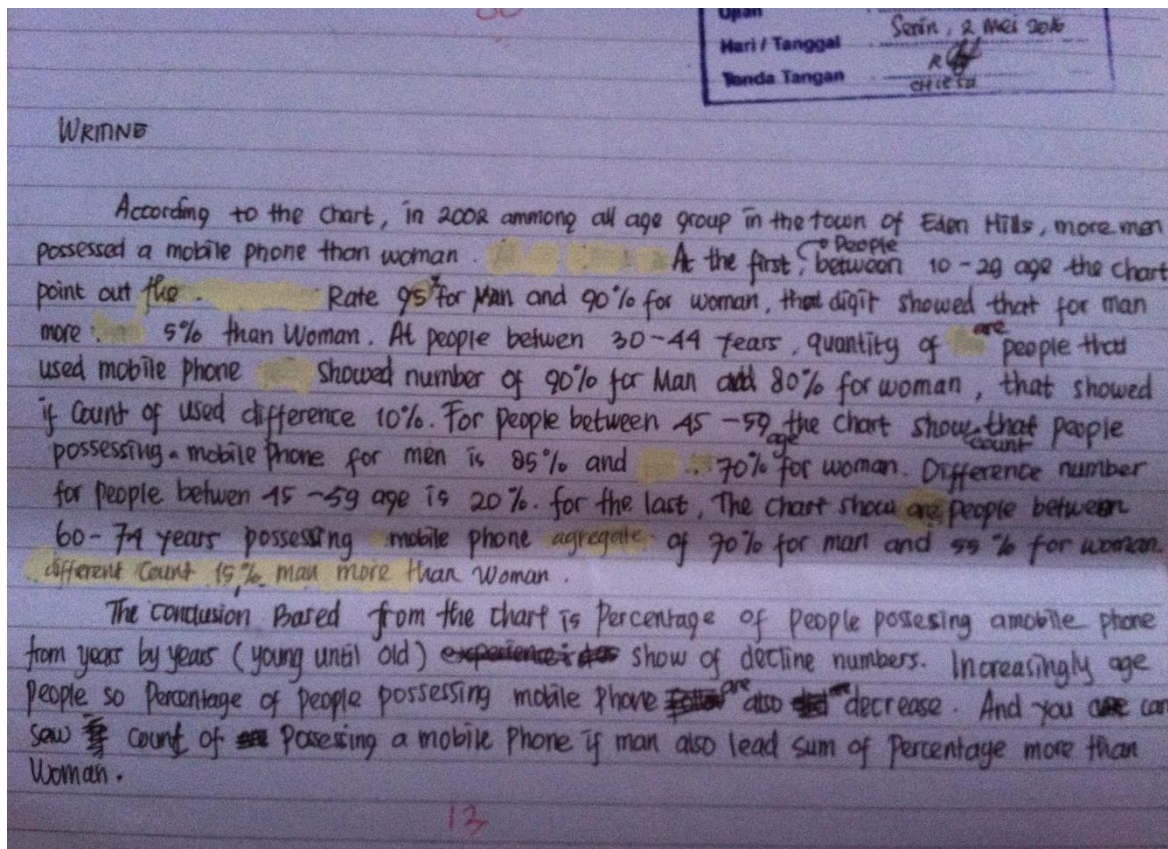 Ujian
Hari / Tanggal Senin, 2 Mei 2016
Tanda Tangan
CHIESA
WRITING
According to the chart, in 2002 ammong all age group in the town of Eden Hills, more men
possessed a mobile phone than woman. At the first, People between 10-29 age the chart
point out the Rate 95% for Man and 90% for woman, that digit showed that for man
more 5% than Woman. At people betwen 30-44 years, quantity of are people that
used mobile phone showed number of 90% for Man and 80% for woman, that showed
if count of used difference 10%. For people between 45-59 age the chart show that people
possessing a mobile phone for men is 85% and count 70% for woman. Difference number
for people betwen 45-59 age is 20%. for the last, The chart show are people between
60-74 years possessing mobile phone agregate of 70% for man and 55% for woman.
different count 15%, man more than Woman.
The conclusion Based from the chart is Percentage of People possesing a mobile phone
from years by years (young until old) show of decline numbers. Increasingly age
people so Percentage of people possessing mobile phone are also are decrease. And you can
saw count of Possesing a mobile phone if man also lead sum of percentage more than
Woman.
13